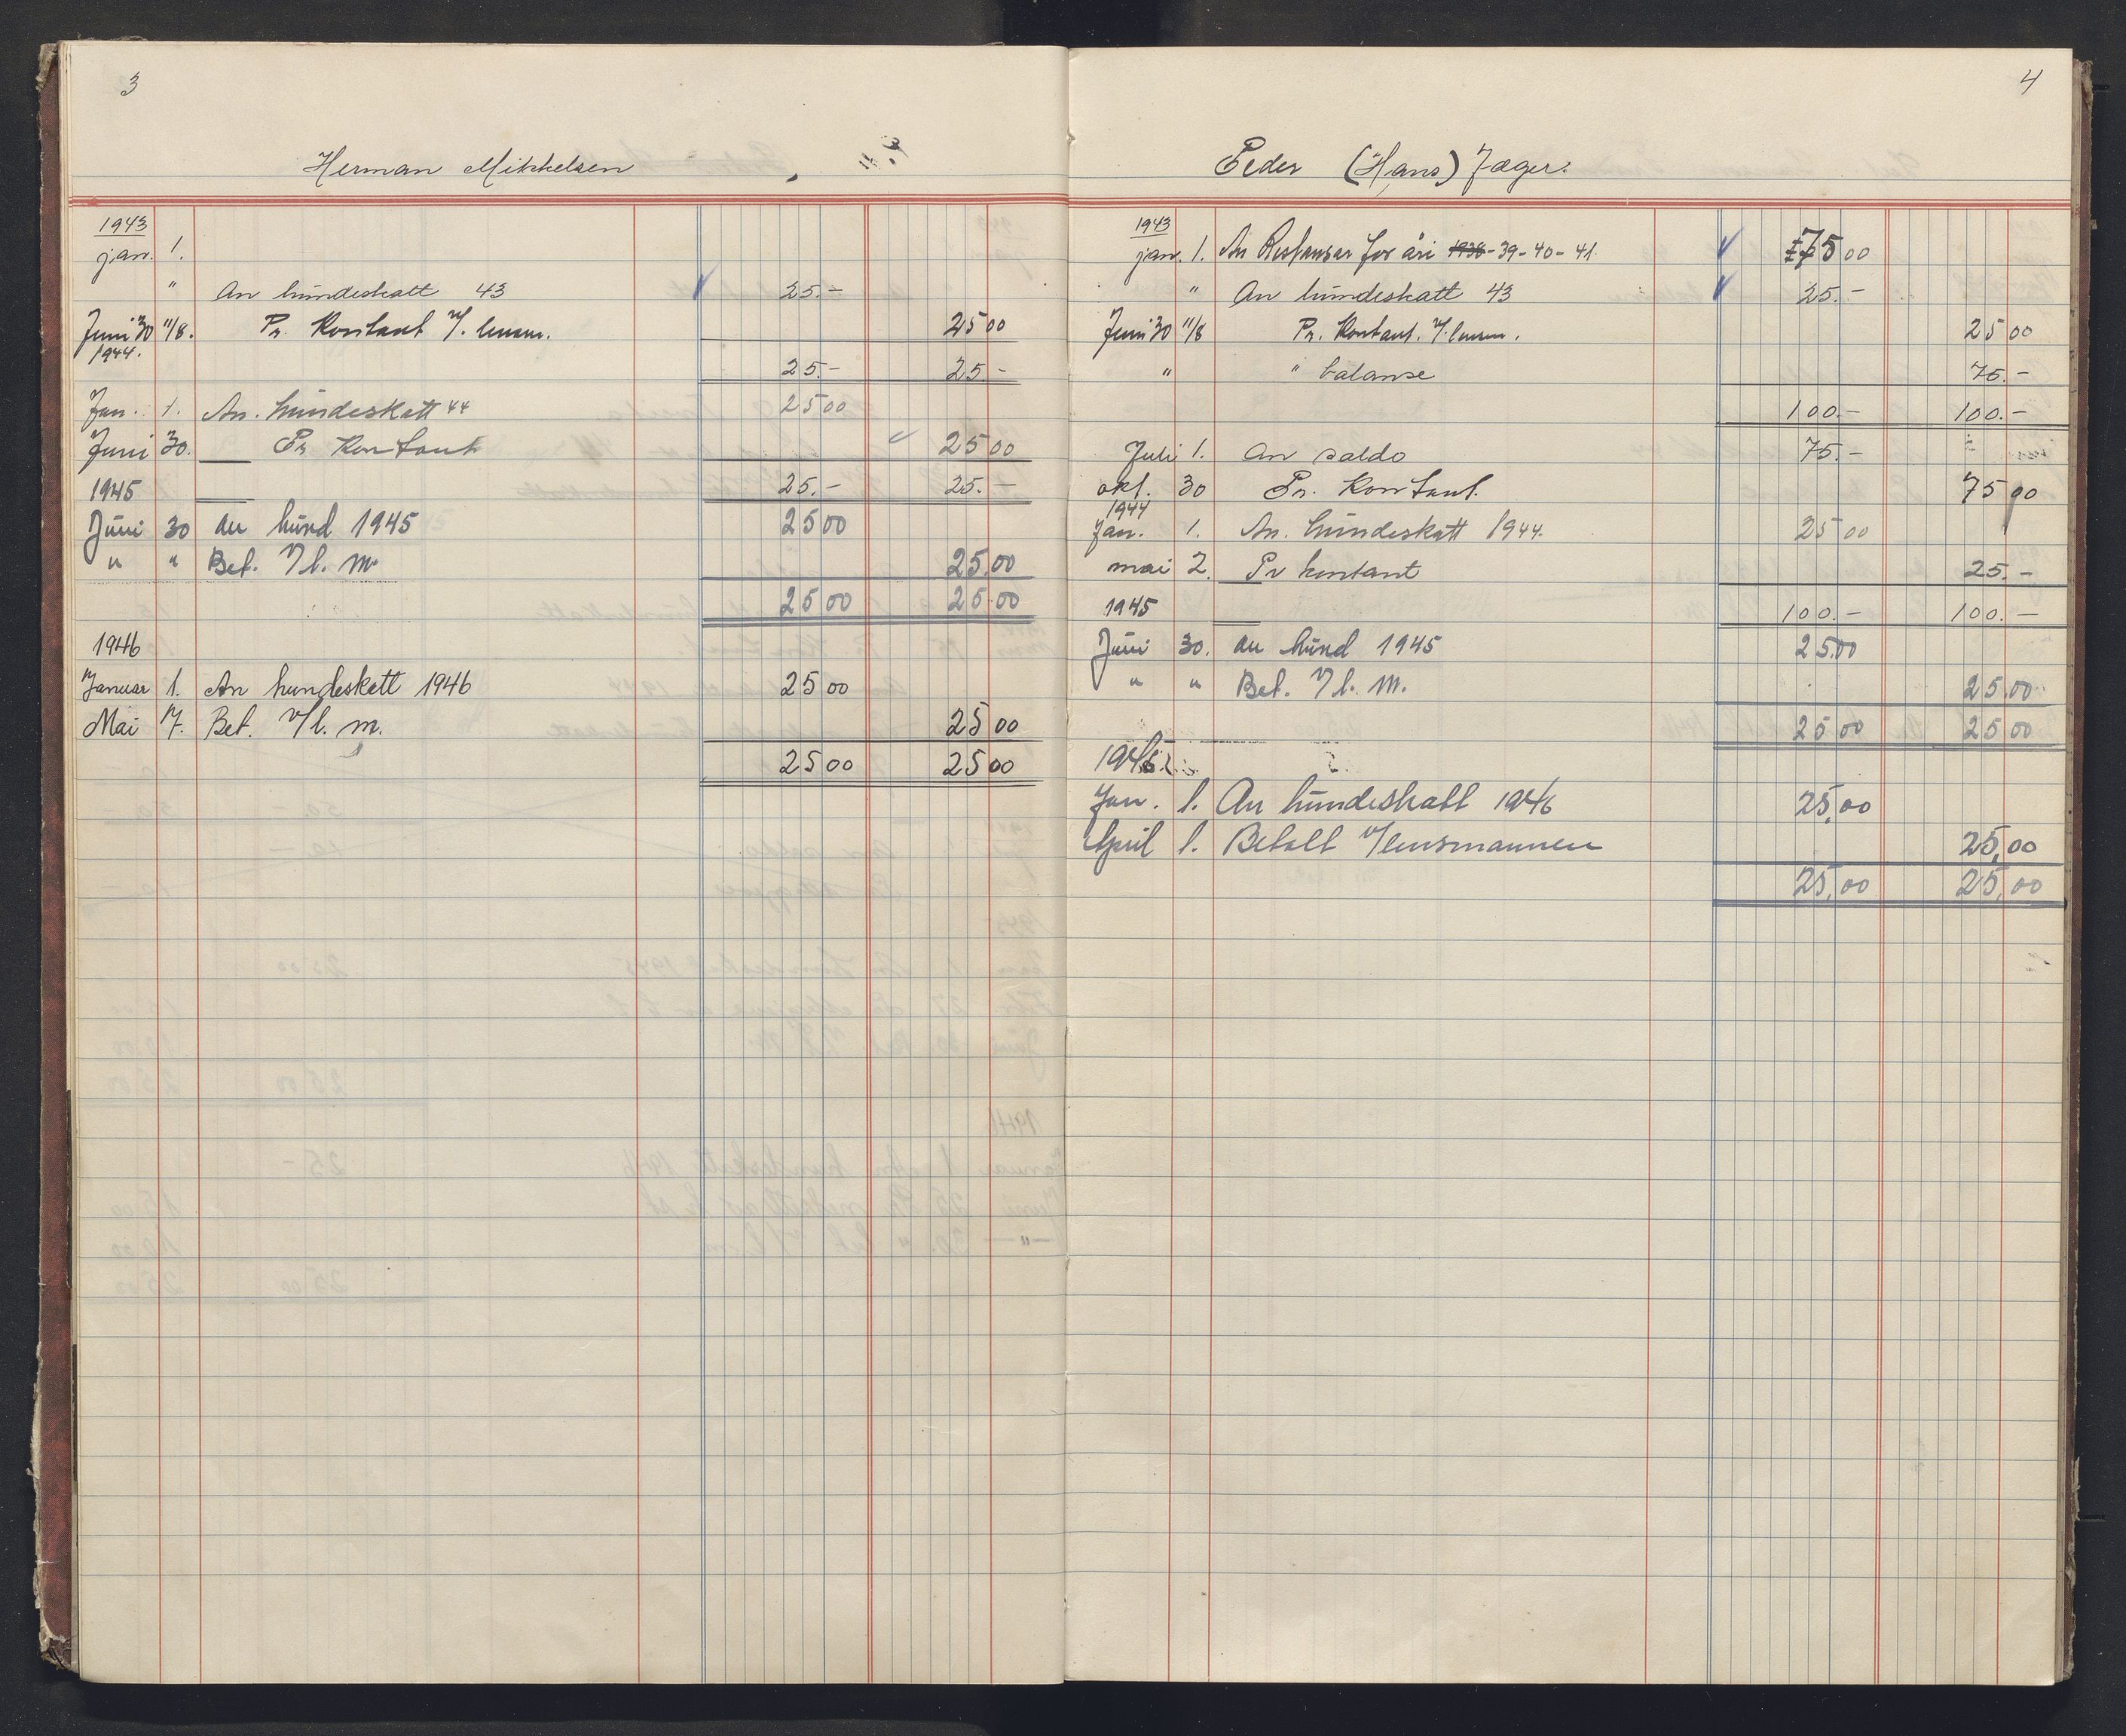 3
Herman Mikkelsen
1943
jan. 1.
" An hundeskatt 43 25.-
Juni 30 11/8. Pr. Kontant v/. lensm. 25 00
1944. 25.- 25 -
Jan. 1. An. hundeskatt 44 25 00
Juni 30. Pr Kontant 25 00
1945 25.- 25.-
Juni 30 an hund 1945 25 00
" " Bet. v/ l. m. 25.00
25 00 25.00
1946
Januar 1. An hundeskatt 1946 25 00
Mai 7. Bet. v/l. m. 25 00
25 00 25 00
4
Peder (Hans) Jæger.
1943
jan. 1. An Restanser for åri 1938-39-40-41. 75 00
" An hundeskatt 43 25.-
Juni 30 11/8 Pr. Kontant. v/. lensm. 25 00
" " balanse 75.-
100.- 100.-
Juli 1. An saldo 75.-
okt. 30 Pr. Kontant. 75 00
1944
Jan. 1. An. hundeskatt 1944. 25 00
mai 2. Pr kontant 25.-
1945 100.- 100.-
Juni 30. an hund 1945 25.00
" " Bet. v/ l. m. 25.00
25 00 25 00
1946
Jan. 1. An hundeskatt 1946 25,00
April 1. Betalt v/lensmannen 25,00
25,00 25,00